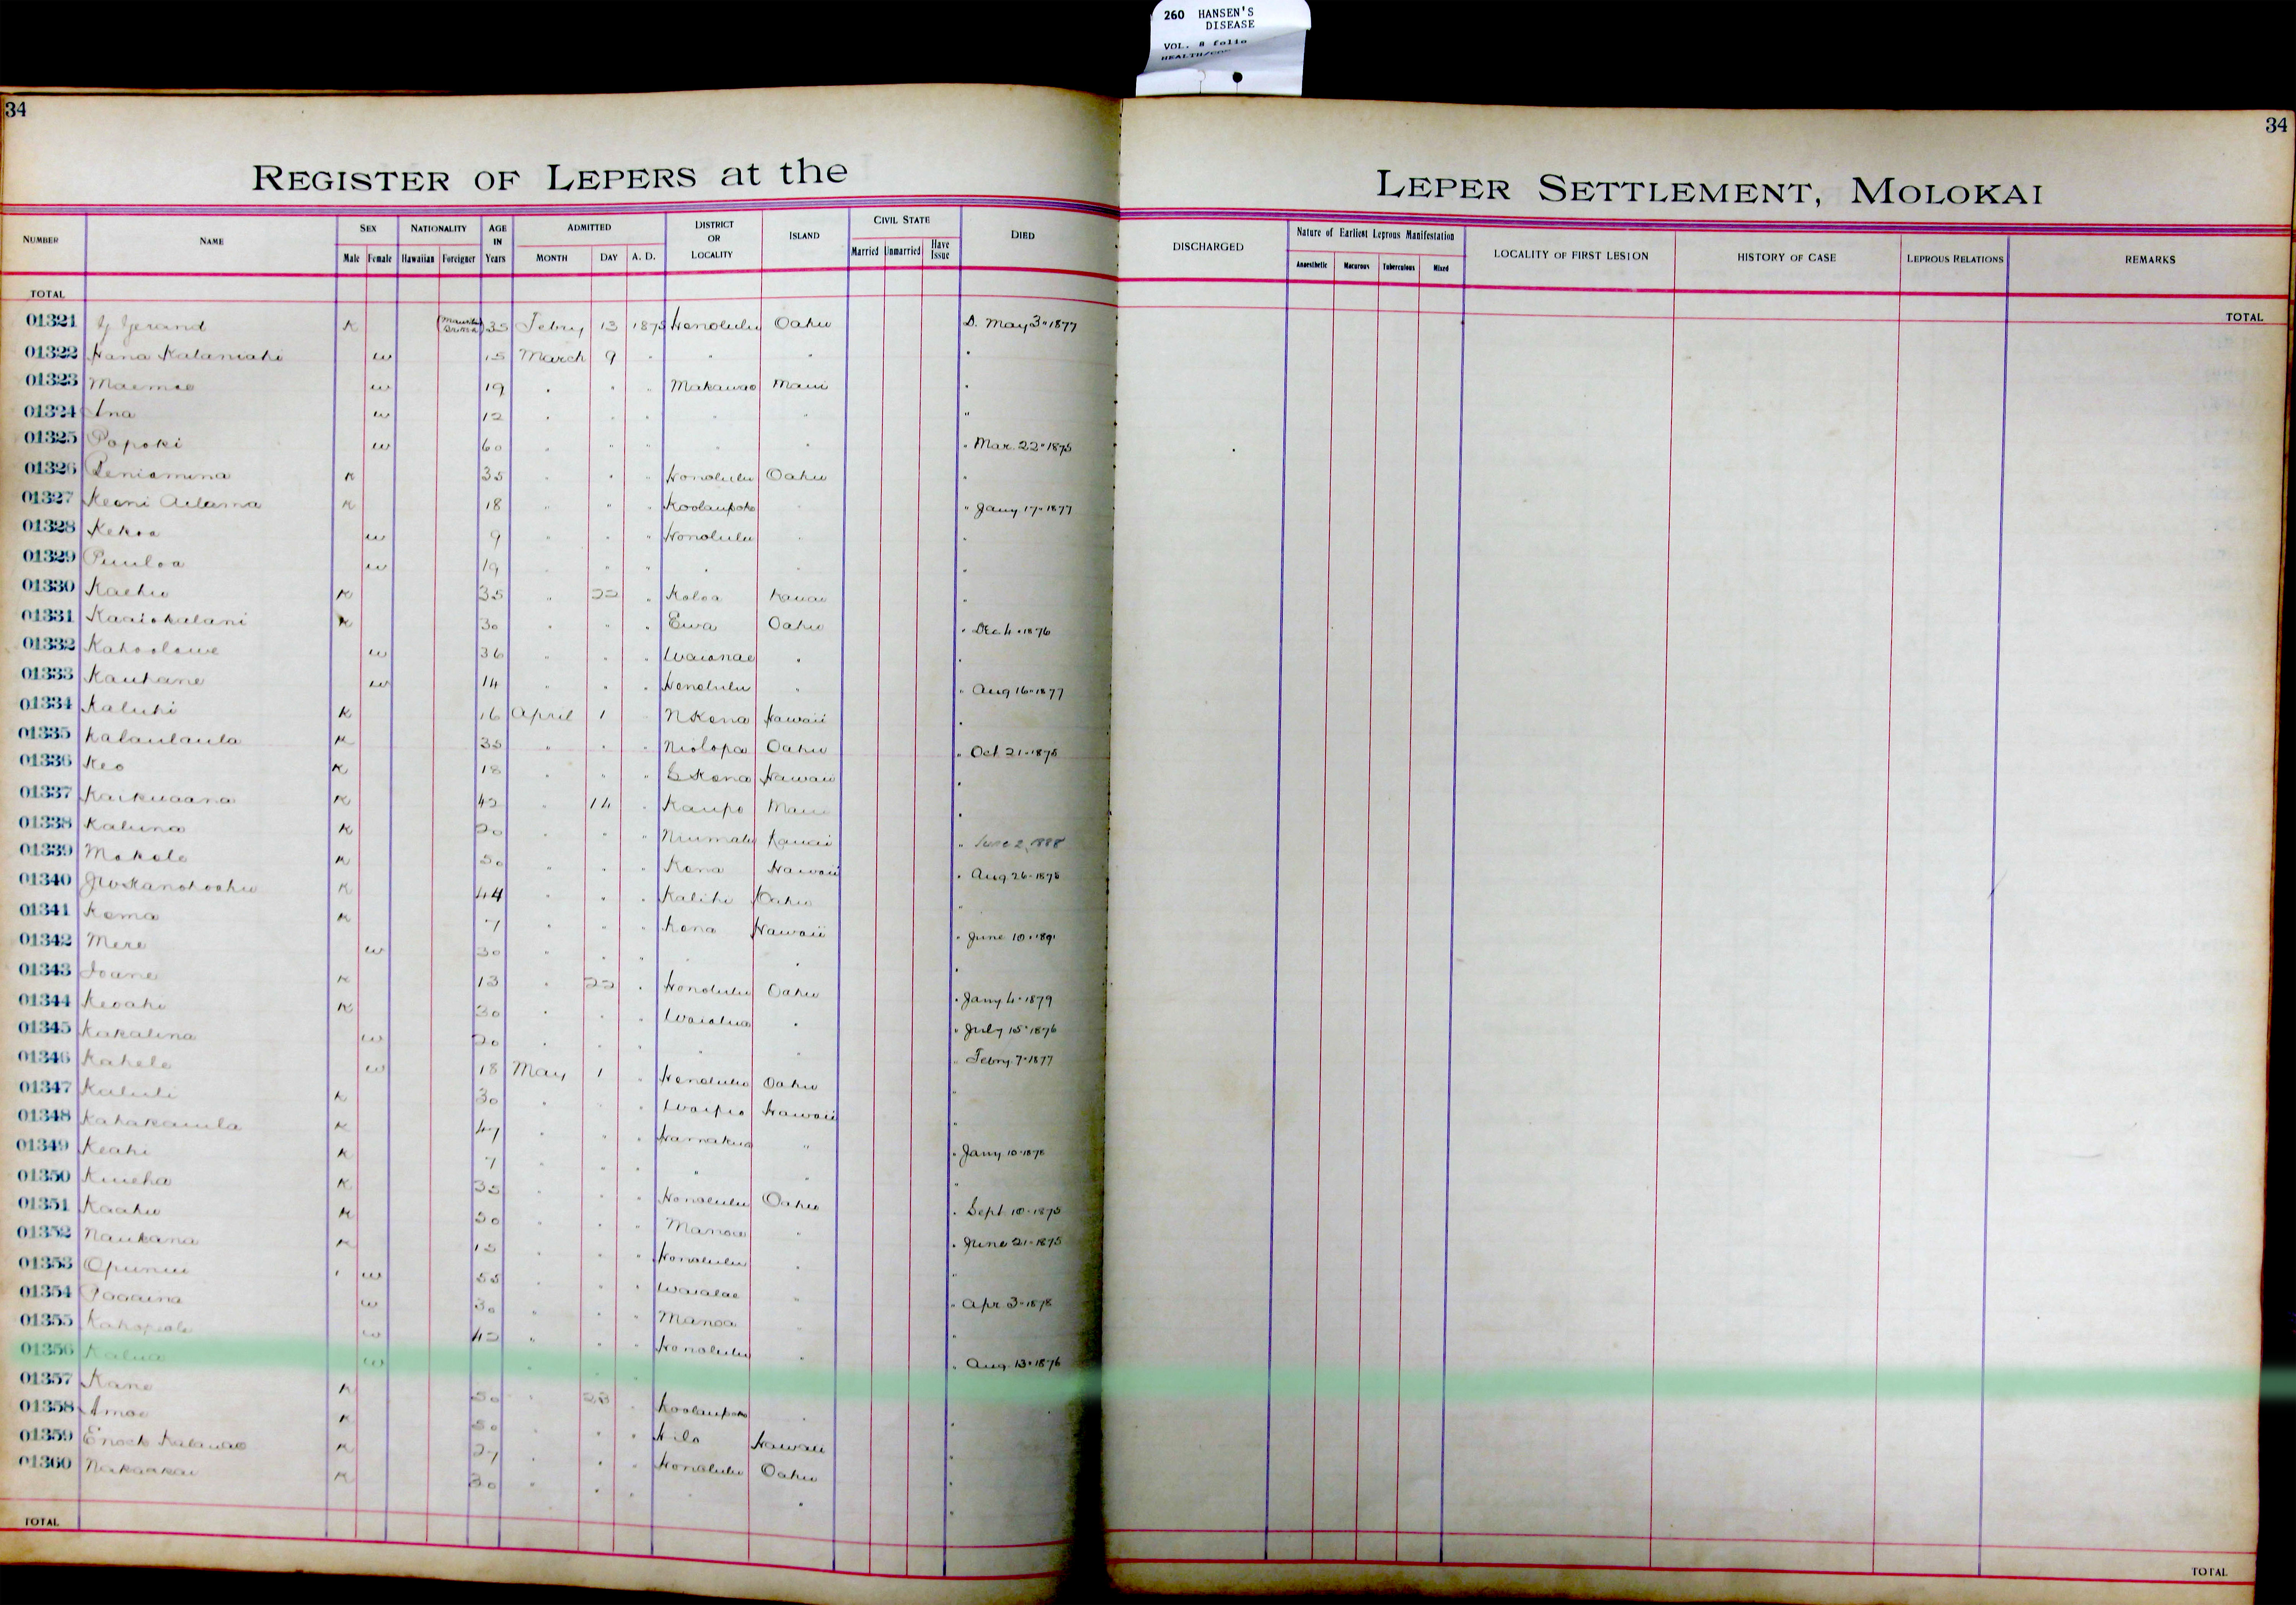 260 HANSEN'S
DISEASE
VOL. 8 folio
34
34
REGISTER OF LEPERS at the
LEPER SETTLEMENT, MOLOKAI
NUMBER NAME SEX NATIONALITY AGE IN Years ADMITTED DISTRICT OR LOCALITY ISLAND CIVIL STATE DIED
Male Female Hawaiian Foreigner MONTH DAY A. D. Married Unmarried Have Issue
DISCHARGED Nature of Earliest Leprous Manifestation LOCALITY OF FIRST LESION HISTORY OF CASE LEPROUS RELATIONS REMARKS
Anaesthetic Macurous Tuberculous Mixed
TOTAL
TOTAL
01321 K 35 Febry 13 1875 Honolulu Oahu D. May 3 " 1877
01322 Hana Kalaniahi w 15 March 9 " " " "
01323 Maemae w 19 " " " Makawao Maui "
01324 Ana w 12 " " " " " "
01325 Popoki w 60 " " " " " " Mar. 22 " 1875
01326 Peniamina K 35 " " " Honolulu Oahu "
01327 Keoni Ailama K 18 " " " Koolaupoko " " Jany 17 " 1877
01328 Kekoa w 9 " " " Honolulu " "
01329 Puuloa w 19 " " " " " "
01330 Kaehu K 35 " 22 " Koloa Kauai "
01331 Kaaiokalani K 30 " " " Ewa Oahu " Dec 4 " 1876
01332 Kahoolawe w 36 " " " Waianae " "
01333 Kauhane w 14 " " " Honolulu " " Aug 16 " 1877
01334 Kaluhi K 16 April 1 " N Kona Hawaii "
01335 Kalaulaula K 35 " " " Niolopa Oahu " Oct 21 " 1878
01336 Keo K 18 " " " S Kona Hawaii "
01337 Kaikuaana K 42 " 14 " Kaupo Maui "
01338 Kaluna K 20 " " " Niumalu Kauai " June 2, 1888
01339 Makale K 50 " " " Kona Hawaii " Aug 26 " 1878
01340 JW Kanohoahu K 44 " " " Kalihi Oahu "
01341 Kema K 7 " " " Kona Hawaii " June 10 " 1891
01342 Mere w 30 " " " " " "
01343 Ioane K 13 " 22 " Honolulu Oahu " Jany 4 " 1879
01344 Keoahi K 30 " " " Waialua " " July 15 " 1876
01345 Kakalina w 20 " " " " " " Febry. 7 " 1877
01346 Kahele w 18 May 1 " Honolulu Oahu "
01347 Kaluli K 30 " " " Waipio Hawaii "
01348 Kahakauila K 47 " " " Hamakua " " Jany 10 " 1878
01349 Keahi K 7 " " " " " "
01350 Kuieha K 35 " " " Honolulu Oahu " Sept 10 " 1875
01351 Kaahu K 50 " " " Manoa " " June 21 " 1875
01352 Naukana K 15 " " " Honolulu " "
01353 Opunui w 55 " " " Waialae " " Apr 3 " 1878
01354 w 30 " " " Manoa " "
01355 w 42 " " " Honolulu " " Aug. 13 " 1876
01356 Kalua w
01357 Kane K 50 " 28 " Koolaupoko " "
01358 Amoe K 50 " " " Hilo Hawaii "
01359 Enoch Kalauao K 27 " " " Honolulu Oahu "
01360 Nakaakai K 30 " " " " " "
TOTAL
TOTAL